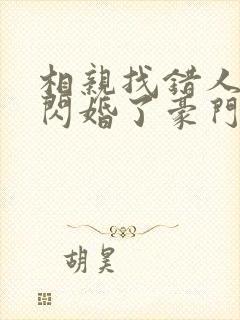 相親找錯人
閃婚了豪門
胡昊